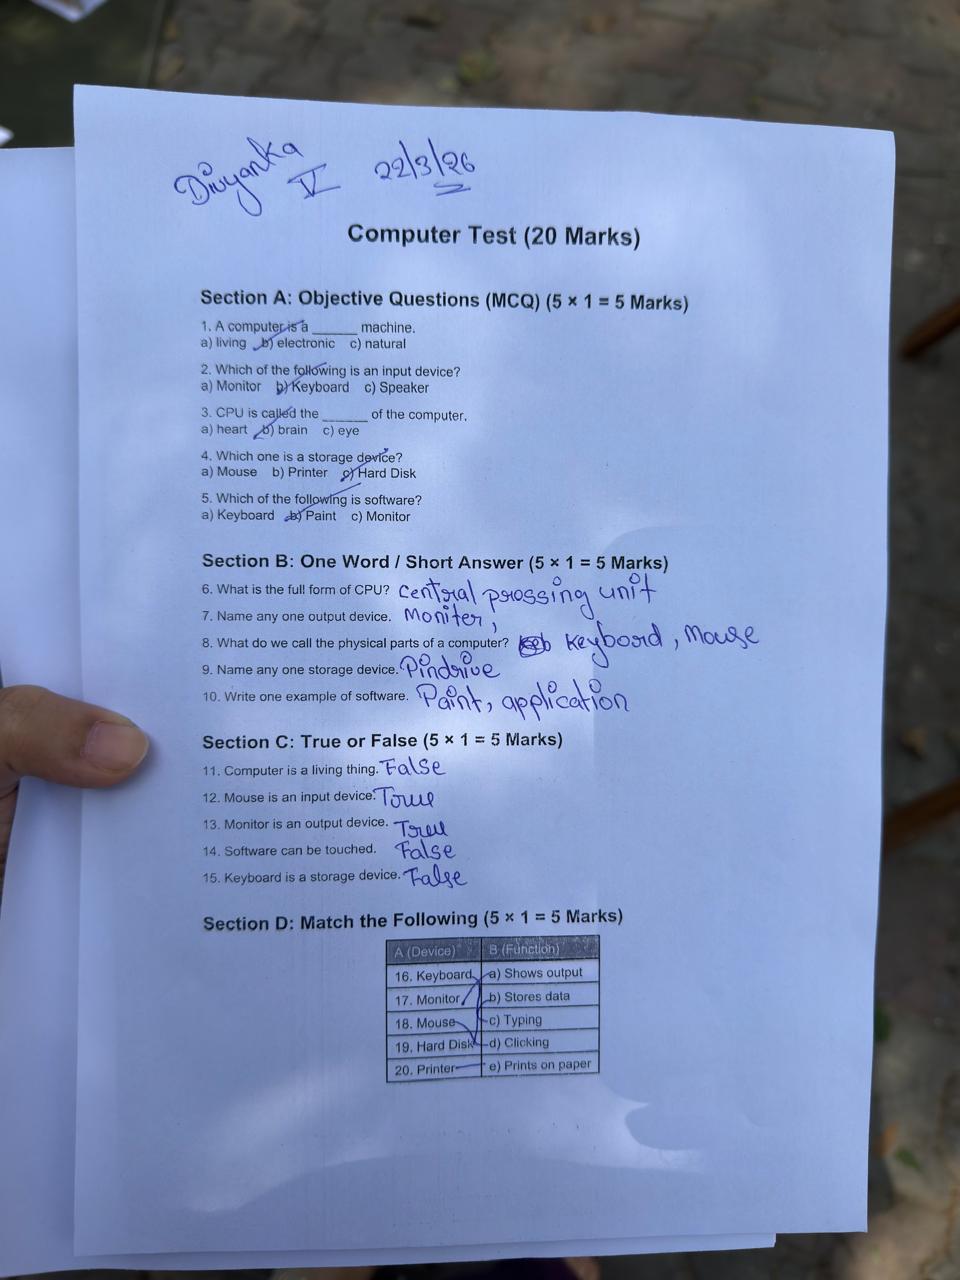 Divyanka
V 22/3/26
Computer Test (20 Marks)
Section A: Objective Questions (MCQ) (5 × 1 = 5 Marks)
1. A computer is a ______ machine.
a) living b) electronic c) natural
2. Which of the following is an input device?
a) Monitor b) Keyboard c) Speaker
3. CPU is called the ______ of the computer.
a) heart b) brain c) eye
4. Which one is a storage device?
a) Mouse b) Printer c) Hard Disk
5. Which of the following is software?
a) Keyboard b) Paint c) Monitor
Section B: One Word / Short Answer (5 × 1 = 5 Marks)
6. What is the full form of CPU? Central prossing unit
7. Name any one output device. Moniter,
8. What do we call the physical parts of a computer? Keyboard, Mouse
9. Name any one storage device. Pindrive
10. Write one example of software. Paint, application
Section C: True or False (5 × 1 = 5 Marks)
11. Computer is a living thing. False
12. Mouse is an input device. True
13. Monitor is an output device. Treu
14. Software can be touched. False
15. Keyboard is a storage device. False
Section D: Match the Following (5 × 1 = 5 Marks)
A (Device) B (Function)
16. Keyboard a) Shows output
17. Monitor b) Stores data
18. Mouse c) Typing
19. Hard Disk d) Clicking
20. Printer e) Prints on paper